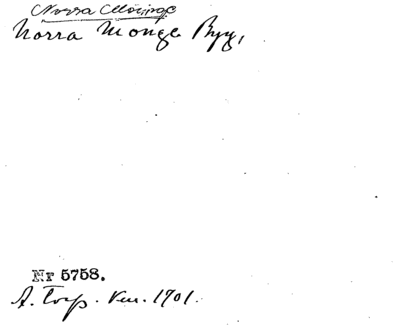 Norra Mönge
Norra Monge Byg,
Nr 5758.
A. Torp. Ven. 1901.